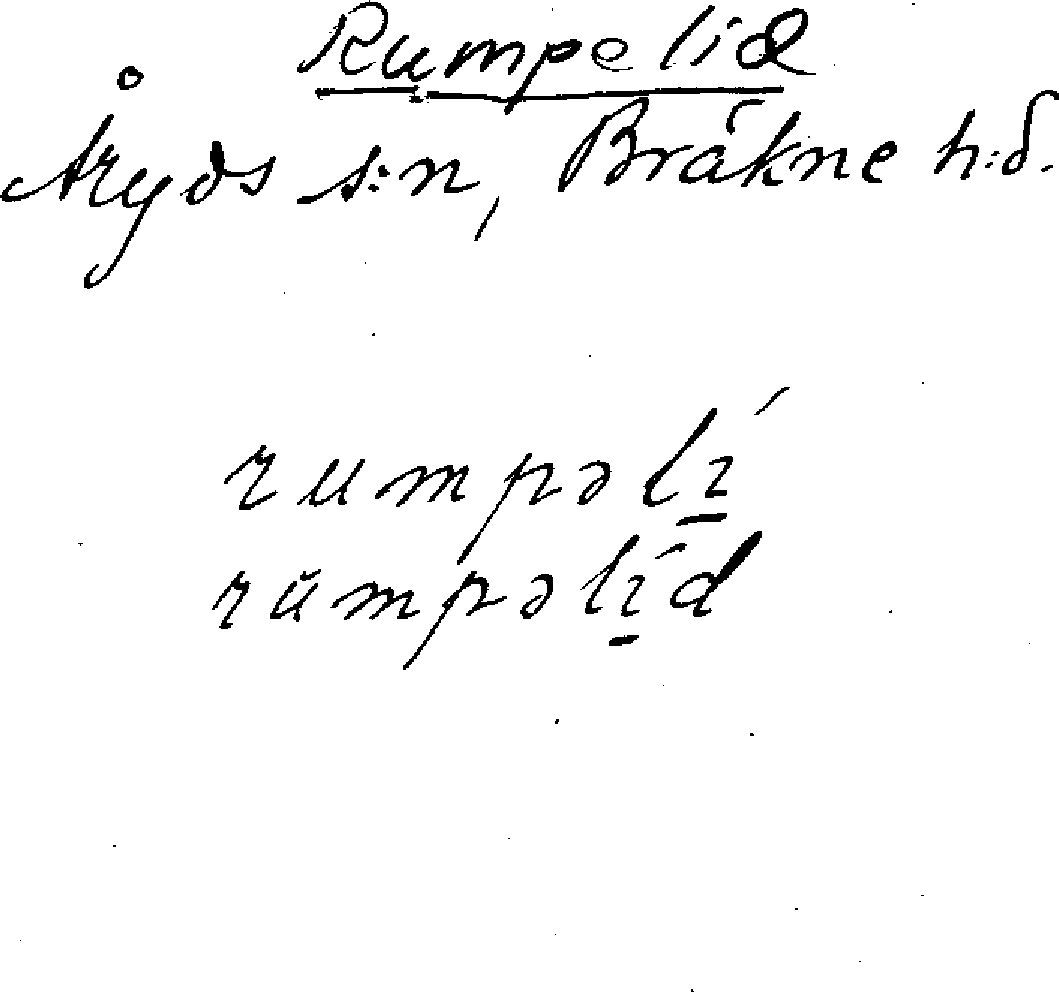 Rumpelid
Åryds s:n, Bräkne h:d.
rumpəlí̱
rŭmpəlí̱d